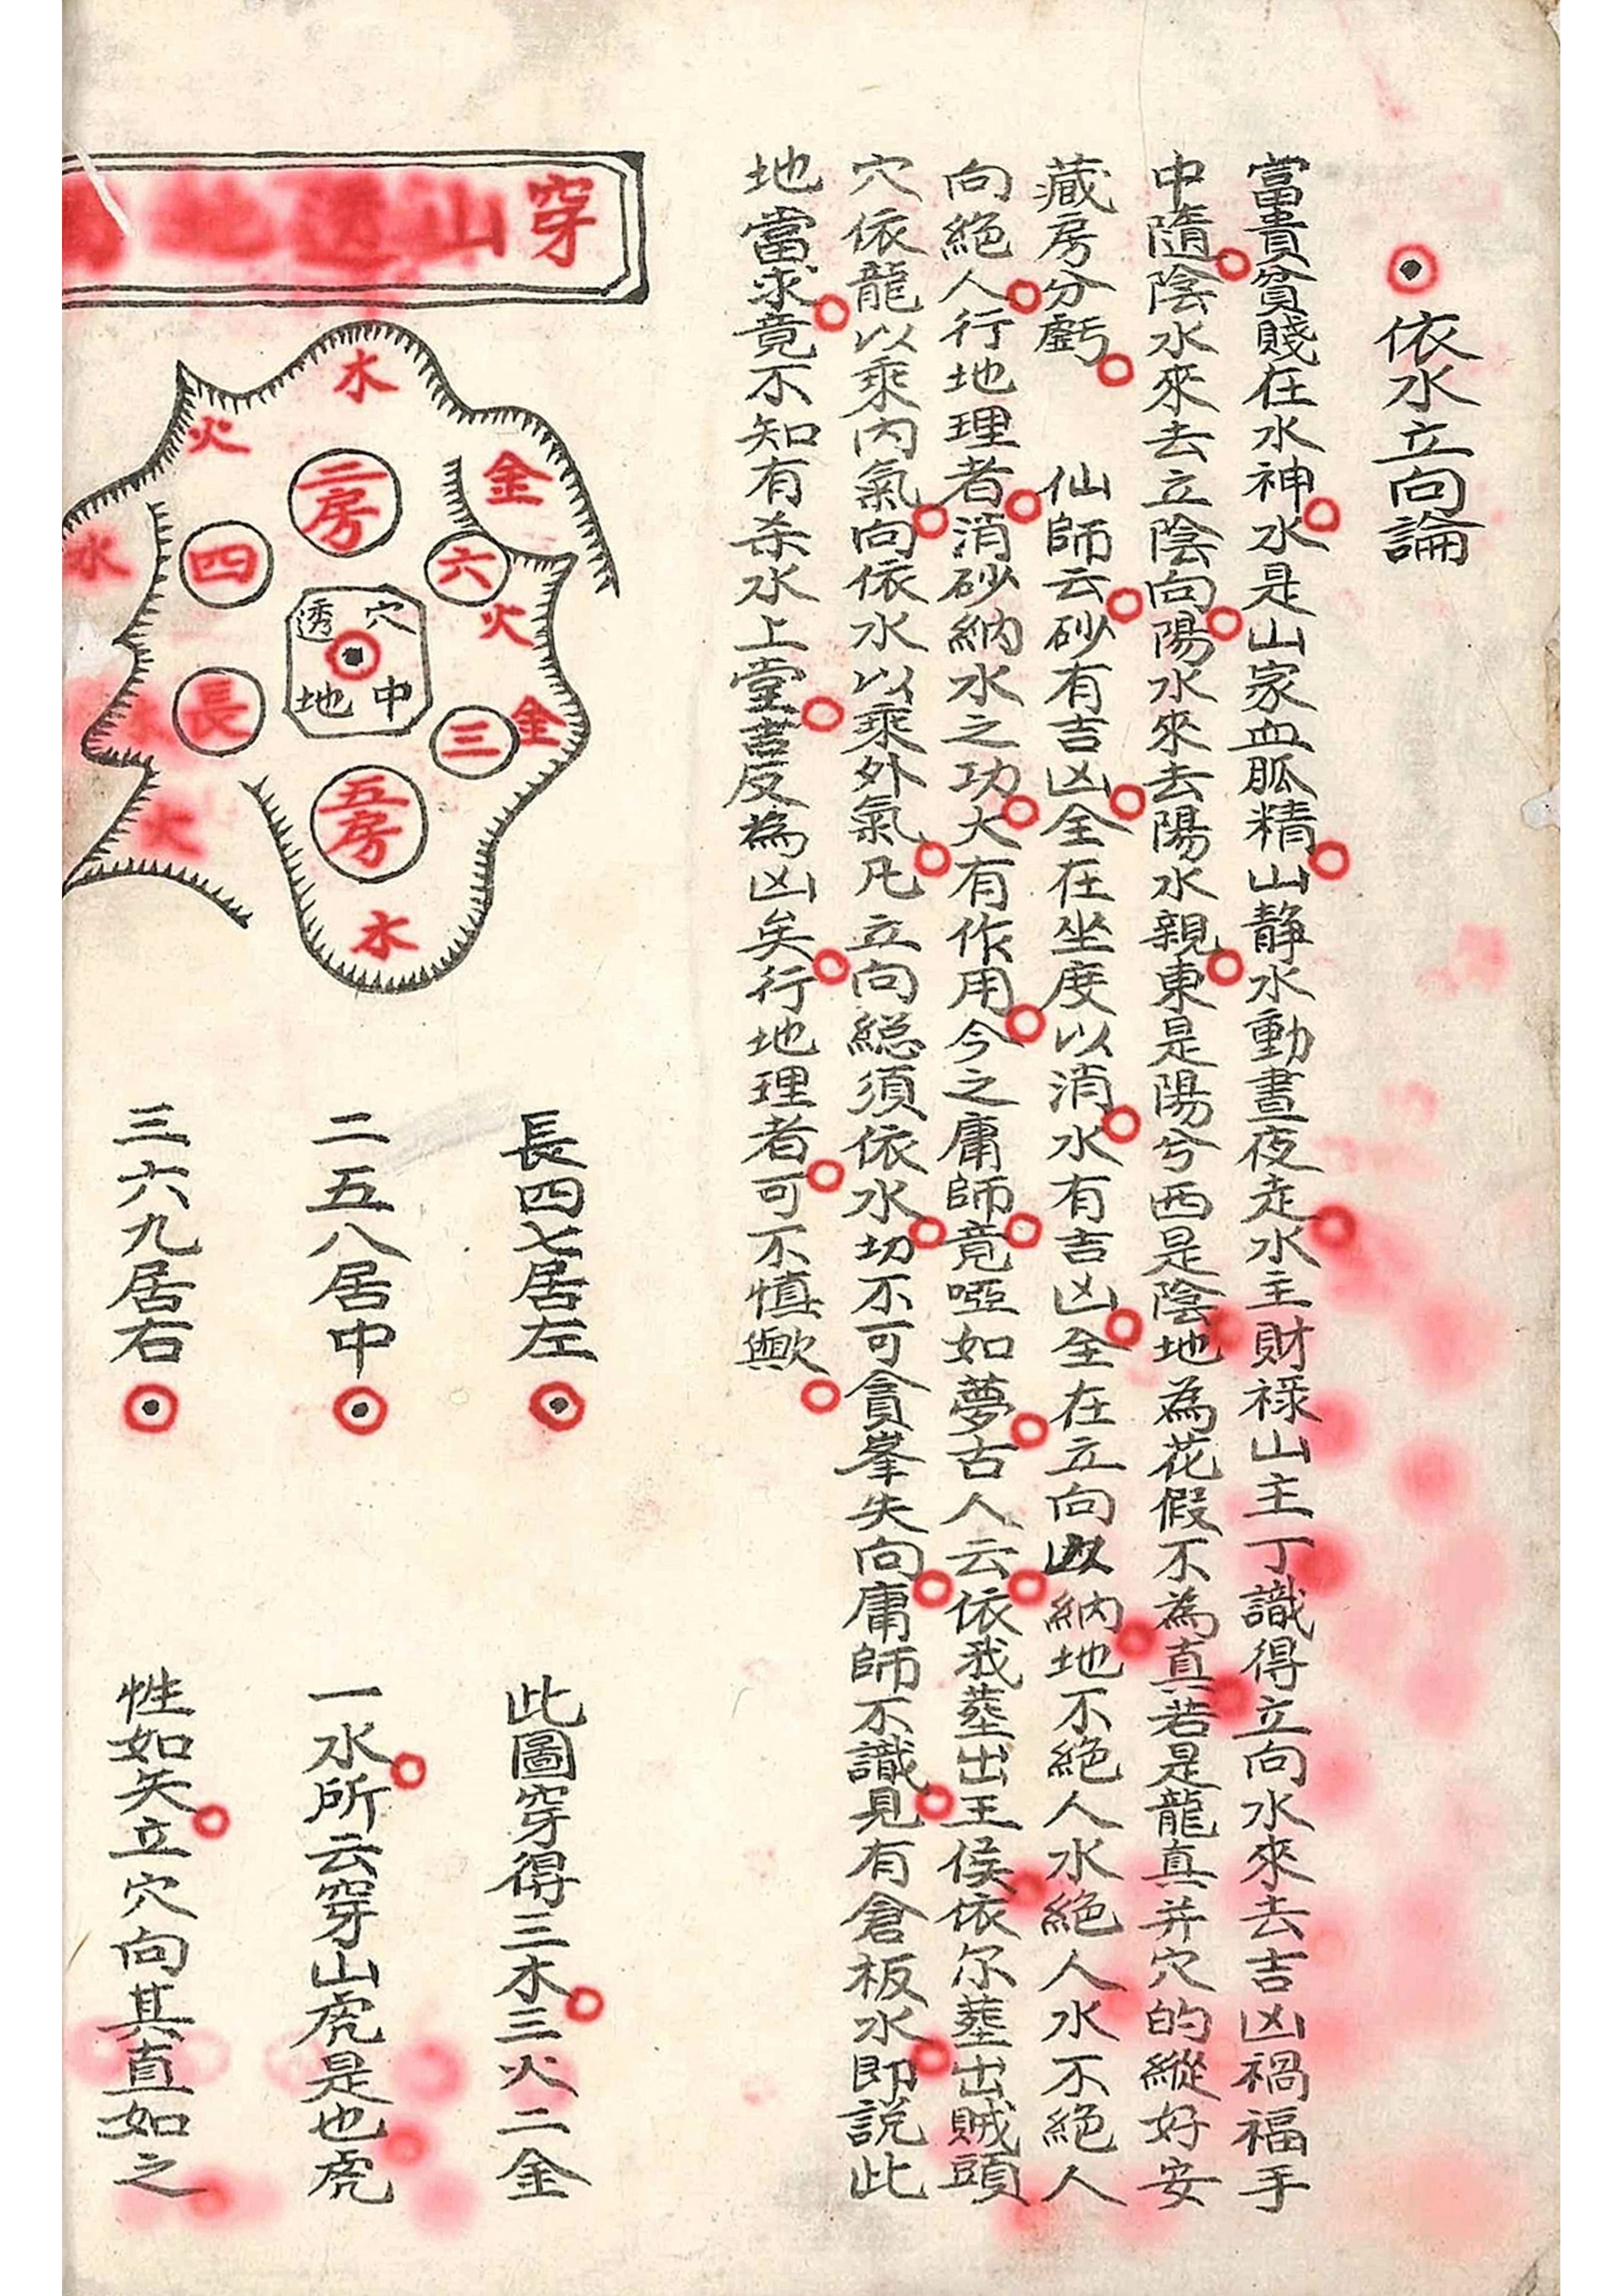 依水立向論
富貴貧賤在水神水是山家血脈精山静水動晝夜走水主財禄山主丁識得立向水來去吉凶禍福手
中隨陰水來去立陰向陽水來去陽水親東是陽兮西是陰地為花假不為真若是龍真并穴的縱好安
藏房分虧　仙師云砂有吉凶全在坐度以消水有吉凶全在立向以納地不絕人水絕人水不絕人
向絕人行地理者消砂納水之功大有作用今之庸師竟啞如夢古人云依我塟出王侯依尔塟出賊頭
穴依龍以乘内氣向依水以乘外氣凡立向総須依水切不可貪峯失向庸師不識見有倉板水即說此
地當求竟不知有杀水上堂吉反為凶矣行地理者可不慎歟
穿山透地
木
火
金
水
二房
四
六
火
穴中透地
長
三
金
火
五房
木
長四七居左
二五八居中
三六九居右
此圖穿得三木三火二金
一水所云穿山虎是也虎
性如矢立穴向其直如之